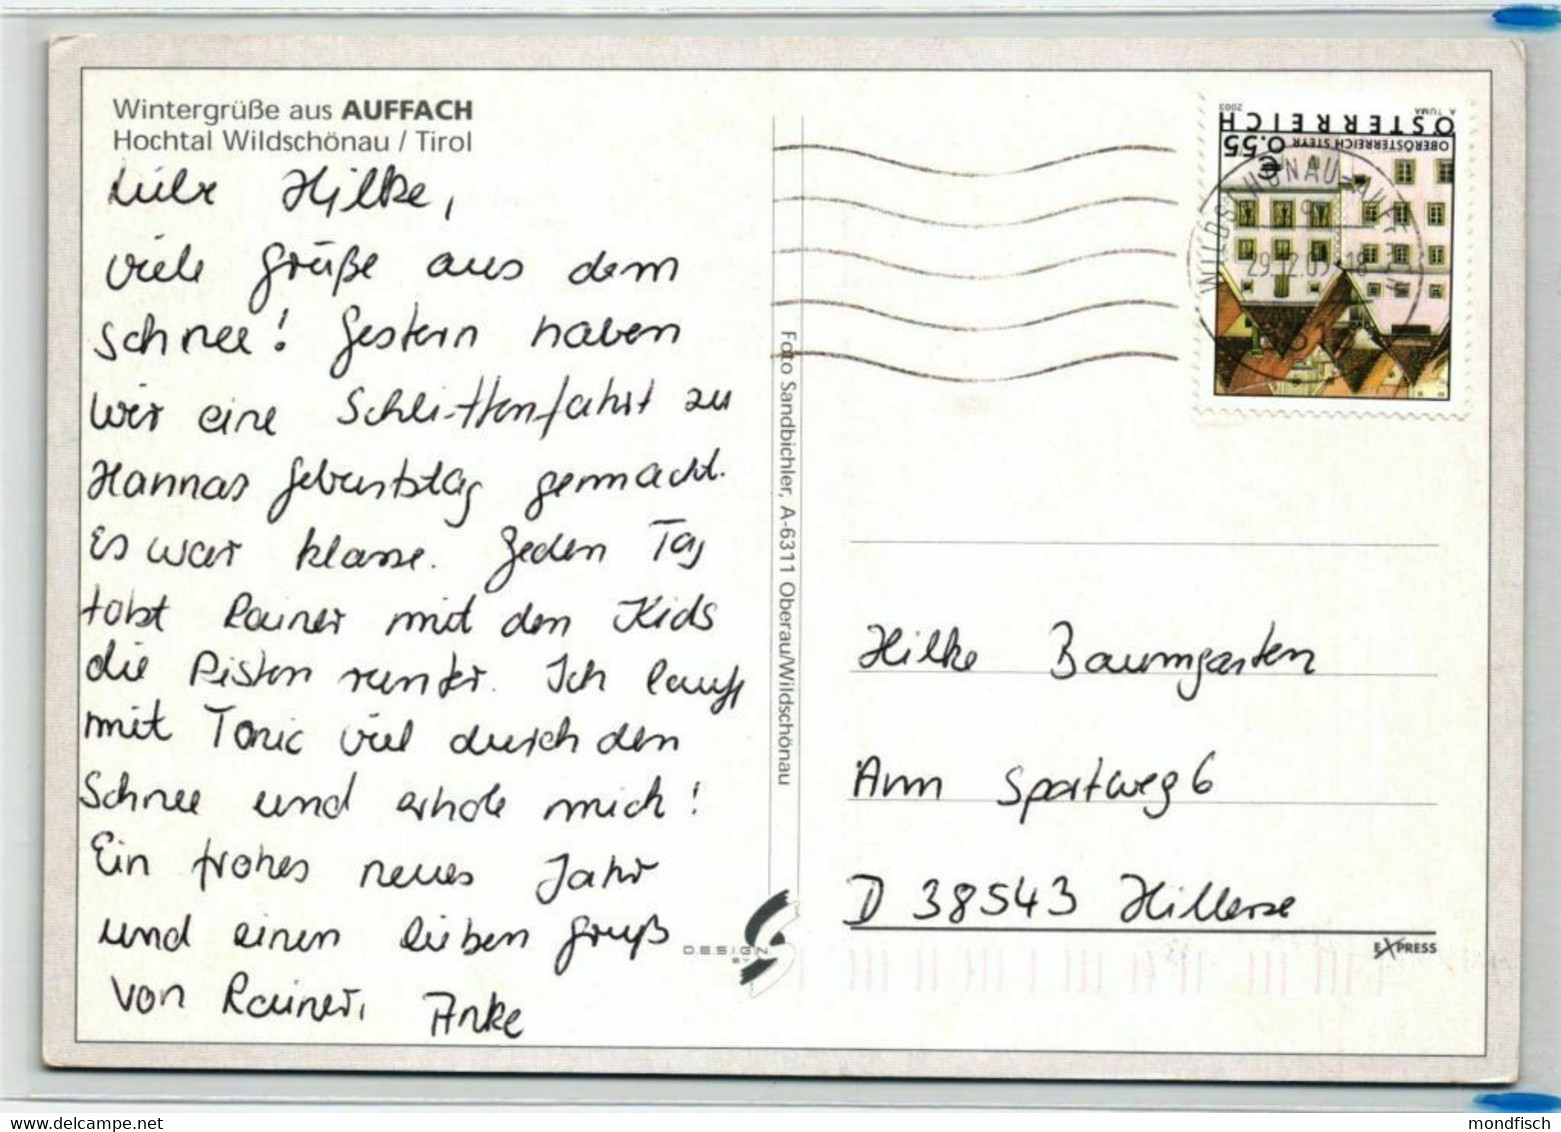 Wintergrüße aus AUFFACH
Hochtal Wildschönau / Tirol
Liebe Hilke,
viele Grüße aus dem
Schnee! Gestern haben
wir eine Schlittenfahrt zu
Hannas Geburtstag gemacht.
Es war klasse. Jeden Tag
tobt Rainer mit den Kids
die Pisten runter. Ich laufe
mit Tonic viel durch den
Schnee und erhole mich!
Ein frohes neues Jahr
und einen lieben Gruß
von Rainer, Anke
DESIGN BY
Foto Sandbichler, A-6311 Oberau/Wildschönau
ÖSTERREICH
A. TUMA
2003
OBERÖSTERREICH STEYR
€ 0.55
29.12.05-18
Hilke Baumgarten
Am Sportweg 6
D 38543 Hillerse
EXPRESS
mondfisch